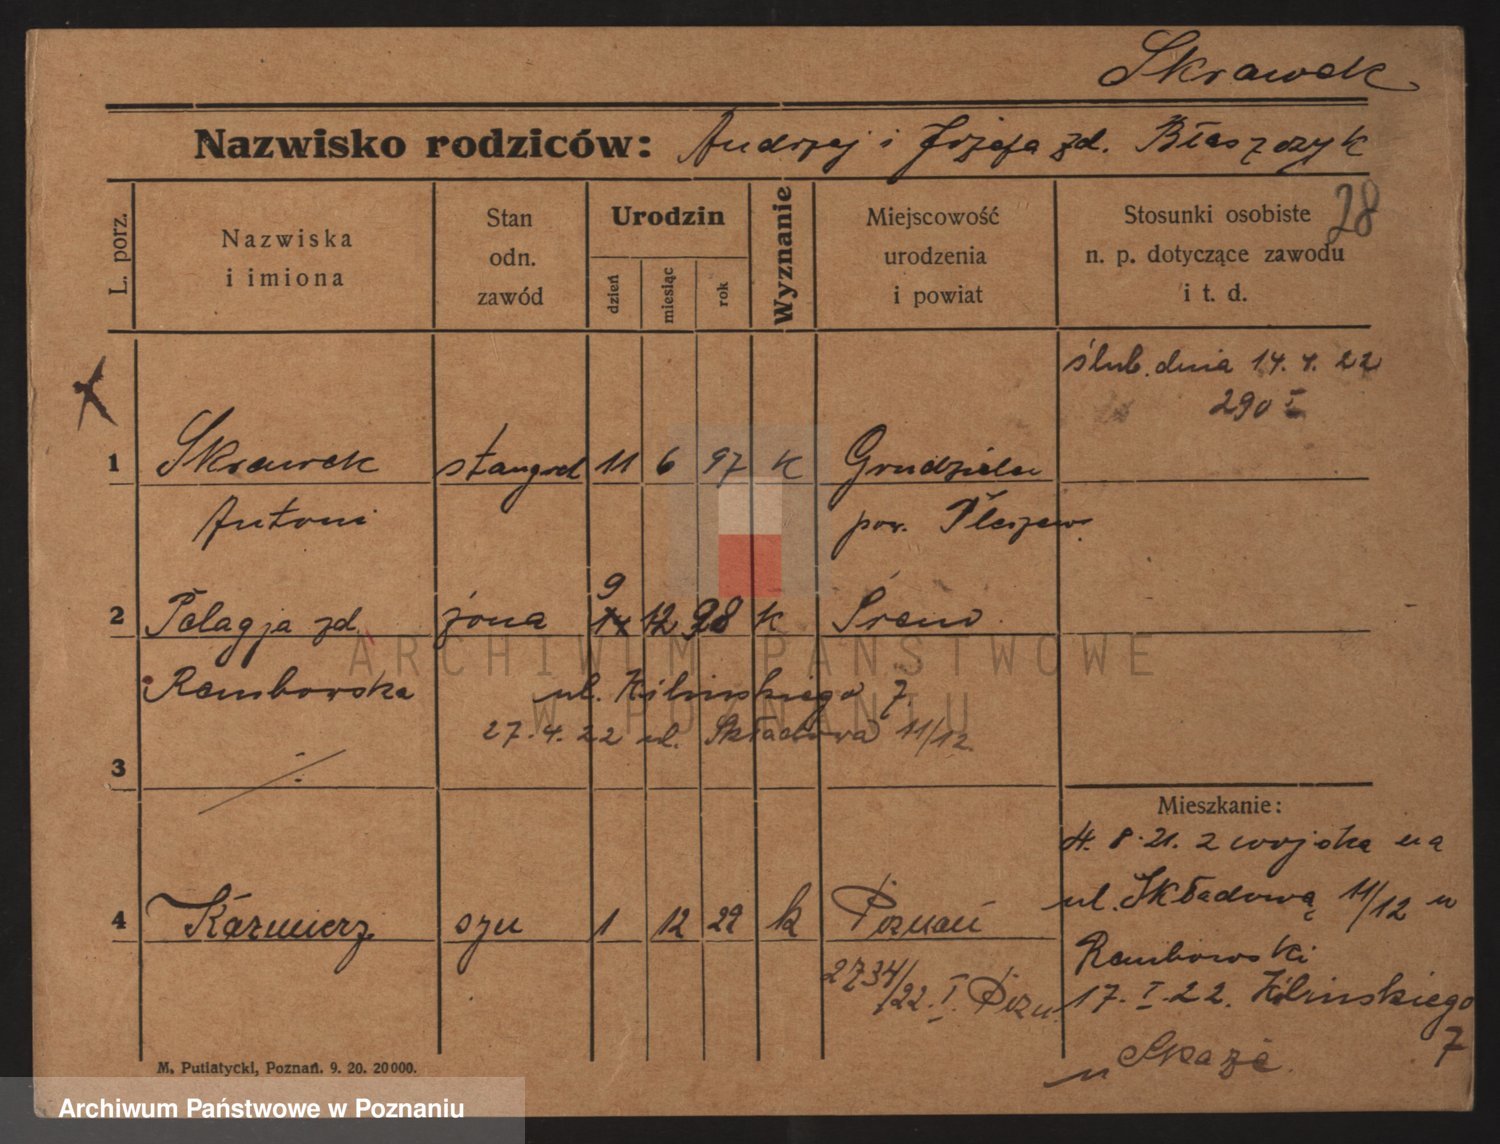 Skrawek
Nazwisko rodziców: Andrzej i Józefa zd. Błaszczyk
28
L. porz.
Nazwiska
i imiona
Stan
odn.
zawód
Urodzin
dzień
miesiąc
rok
Wyznanie
Miejscowość
urodzenia
i powiat
Stosunki osobiste
n. p. dotyczące zawodu
i t. d.
ślub. dnia 14. 4. 22
290 I
1 Skrawek stangret 11 6 97 k Grudzielec
Antoni pow. Pleszew.
9
2 Pelagja zd. żona 12 98 k Śrem
Rembowska ul. Kilińskiego 7.
27. 4. 22 ul. Składowa 11/12.
3
Mieszkanie:
4. 8. 21. z wojska na
ul. Składową 11/12 u
4 Kazmierz syn 1 12 22 k Poznań
Rembowski
2734/22. I. Pozn.
17. I. 22. Kilińskiego
7
u
M. Putiatycki, Poznań. 9. 20. 20000.
ARCHIWUM PAŃSTWOWE
W POZNANIU
Archiwum Państwowe w Poznaniu